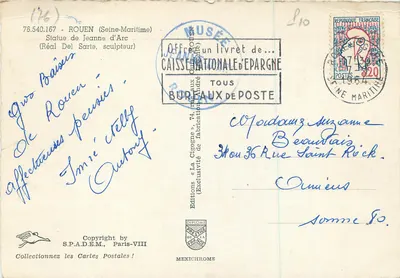 (76)
£10
78.540.167 - ROUEN (Seine-Maritime)
Statue de Jeanne d'Arc
(Réal Del Sarte, sculpteur)
MUSÉE
Offrez un livret de...
CAISSE NATIONALE D'EPARGNE
TOUS
BUREAUX DE POSTE
ROUEN
SEINE MARITIME
17H30
1964
0,20
Gros Baisers
de Rouen
affectueuses pensées
Aimé Nelly
Antony
Editions « La Cigogne », 74,
(Exclusivité de fabrication
Madame Suzanne
Beauvais
36 Rue Saint Roch.
Amiens
Somme 80.
Copyright by
S.P.A.D.E.M., Paris-VIII
Collectionnez les Cartes Postales !
MEXICHROME